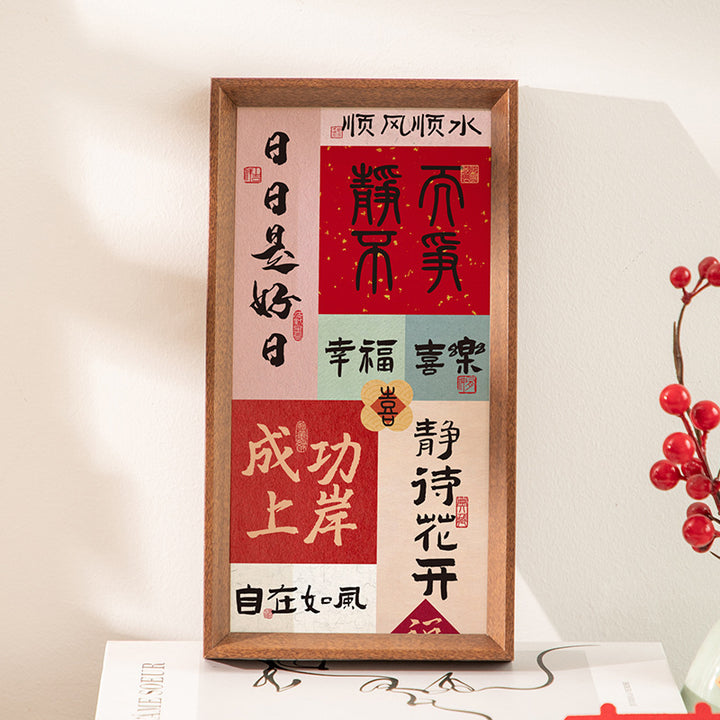 日日是好日
顺风顺水
靜而
不爭
幸福
喜樂
喜
成功
上岸
静待花开
自在如風